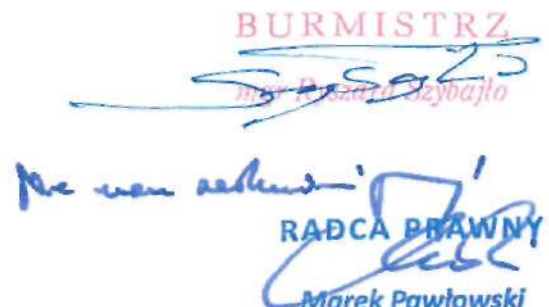 BURMISTRZ
mgr Ryszard Szybajło
Nie mam
RADCA PRAWNY
Marek Pawłowski